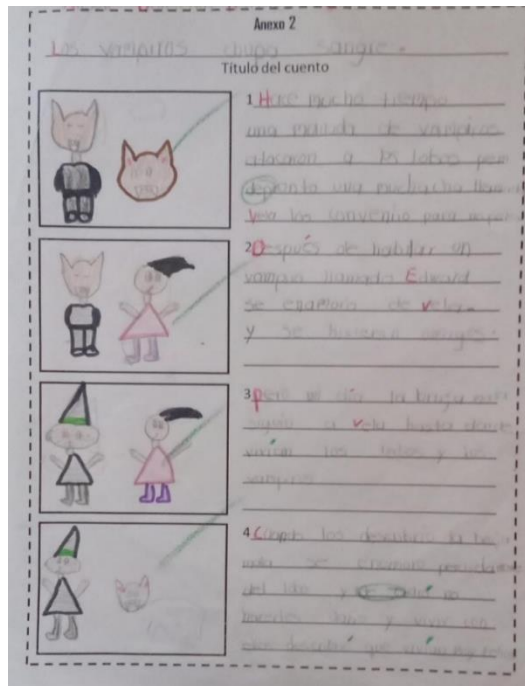 Anexo 2
Los vampiros chupa sangre.
Título del cuento
1 Hace mucho tiempo
una manada de vampiros
atacaron a los lobos pero
una muchacha
Vela los convencio para
2 Después de hablar un
vampiro llamado Edward
se enamoro de vela.
y se hicieron amigos.
3 Pero un día la bruja
siguio a vela hasta donde
vivían los lobos y los
vampiros
4 Cuando los descubrio la
se enamoro
del lobo y no
hacerles daño y vivir con
ellos descubrió que